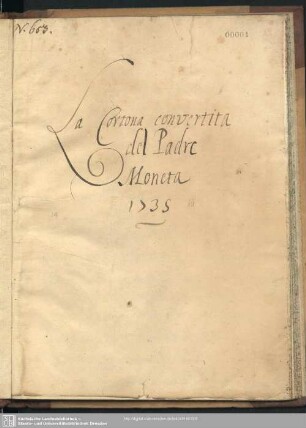 N. 653.
00001
La Cortona convertita
del Padre
Moneta
1735
Sächsische Landesbibliothek -
Staats- und Universitätsbibliothek Dresden